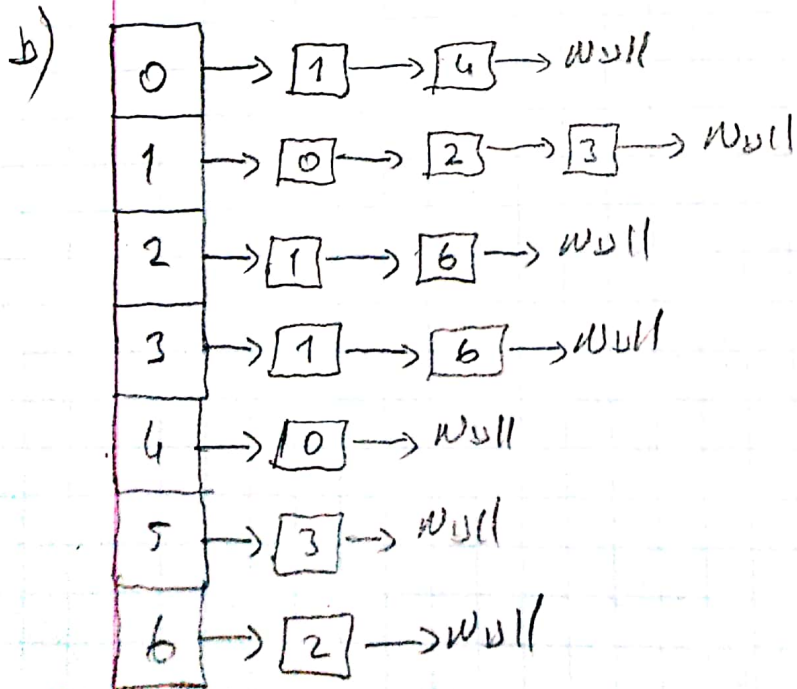 b)
0 → 1 → 4 → Null
1 → 0 → 2 → 3 → Null
2 → 1 → 6 → Null
3 → 1 → 6 → Null
4 → 0 → Null
5 → 3 → Null
6 → 2 → Null